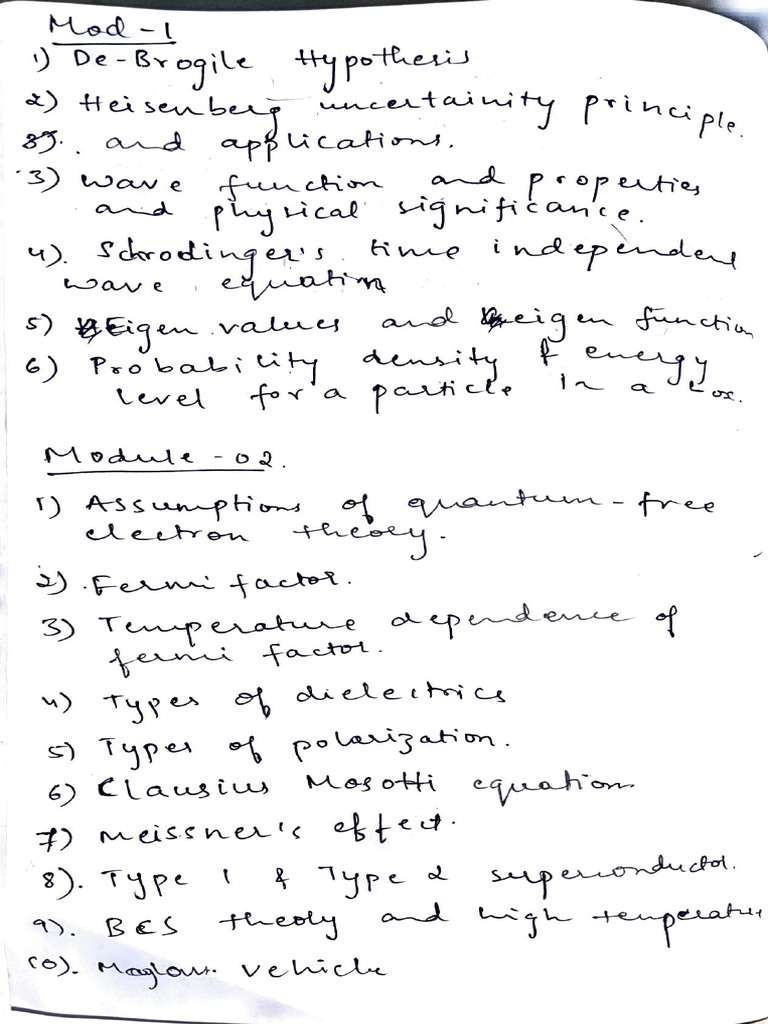 Mod-1
1) De-Brogile Hypothesis
2) Heisenberg uncertainity principle.
and applications.
3) wave function and properties
and physical significance.
4). Schrodinger's time independent
wave equation
5) Eigen values and eigen function
6) Probability density & energy
level for a particle in a box.
Module-02.
1) Assumptions of quantum-free
electron theory.
2) Fermi factor.
3) Temperature dependence of
fermi factor.
4) Types of dielectrics
5) Types of polarization.
6) Clausius Mosotti equation
7) Meissner's effect.
8). Type 1 & Type 2 superconductor.
9). BCS theory and high temperature
10). vehicle